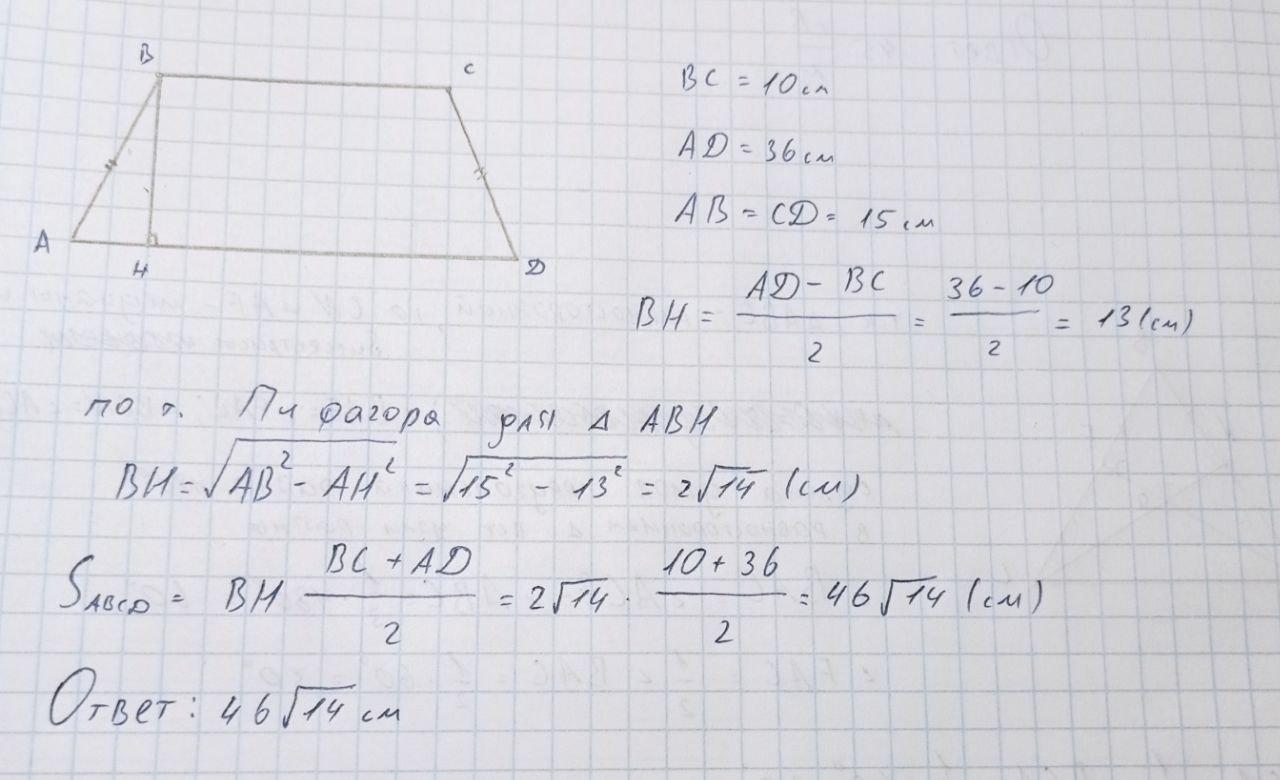 B C
A H D
BC = 10 см
AD = 36 см
AB = CD = 15 см
BH = (AD - BC)/2 = (36 - 10)/2 = 13 (см)
по т. Пифагора для Δ ABH
BH = √(AB² - AH²) = √(15² - 13²) = 2√14 (см)
S_ABCD = BH (BC + AD)/2 = 2√14 · (10 + 36)/2 = 46√14 (см)
Ответ: 46√14 см